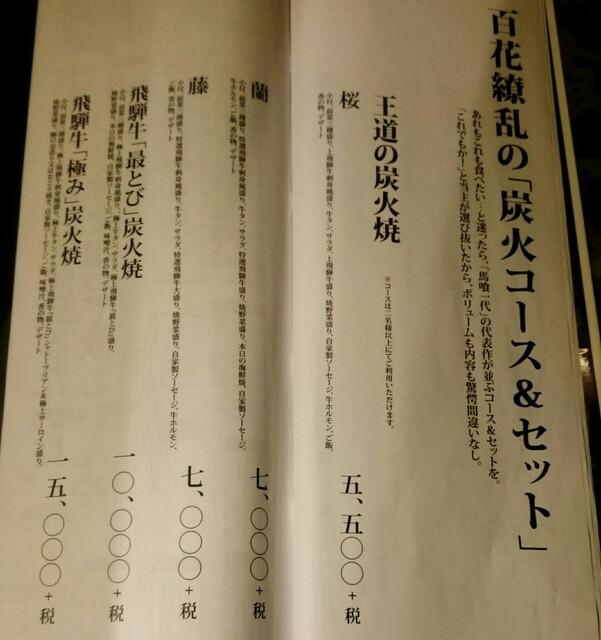 百花繚乱の「炭火コース＆セット」
あれもこれも食べたい…と迷ったら、「馬喰一代」の代表作が並ぶコース＆セットを。
「これでもか！」と当主が選び抜いたから、ボリュームも内容も驚愕間違いなし。
王道の炭火焼
※コースは二名様以上にてご利用いただけます。
桜
五、五〇〇+税
小付、前菜三種盛り、上飛騨牛刺身風盛り、牛タン、サラダ、上飛騨牛盛り、焼野菜盛り、自家製ソーセージ、牛ホルモン、ご飯、
香の物、デザート
蘭
七、〇〇〇+税
小付、前菜三種盛り、特選飛騨牛刺身風盛り、牛タン、サラダ、特選飛騨牛盛り、焼野菜盛り、本日の海鮮焼、自家製ソーセージ、
牛ホルモン、ご飯、香の物、デザート
藤
七、〇〇〇+税
小付、前菜三種盛り、特選飛騨牛刺身風盛り、牛タン、サラダ、特選飛騨牛大盛り、焼野菜盛り、自家製ソーセージ、牛ホルモン、
ご飯、香の物、デザート
飛騨牛「最とび」炭火焼
一〇、〇〇〇+税
小付、前菜三種盛り、極上飛騨牛刺身風盛り、極上牛タン、サラダ、極上飛騨牛「最とび」盛り、
焼野菜盛り、本日の海鮮焼、自家製ソーセージ、ご飯、味噌汁、香の物、デザート
飛騨牛「極み」炭火焼
一五、〇〇〇+税
小付、前菜三種盛り、極上飛騨牛刺身風盛り、極上牛タン、サラダ、極上飛騨牛「最とび」シャトーブリアン＆極上サーロイン盛り、
焼野菜盛り、自家製ソーセージ、ご飯、味噌汁、香の物、デザート